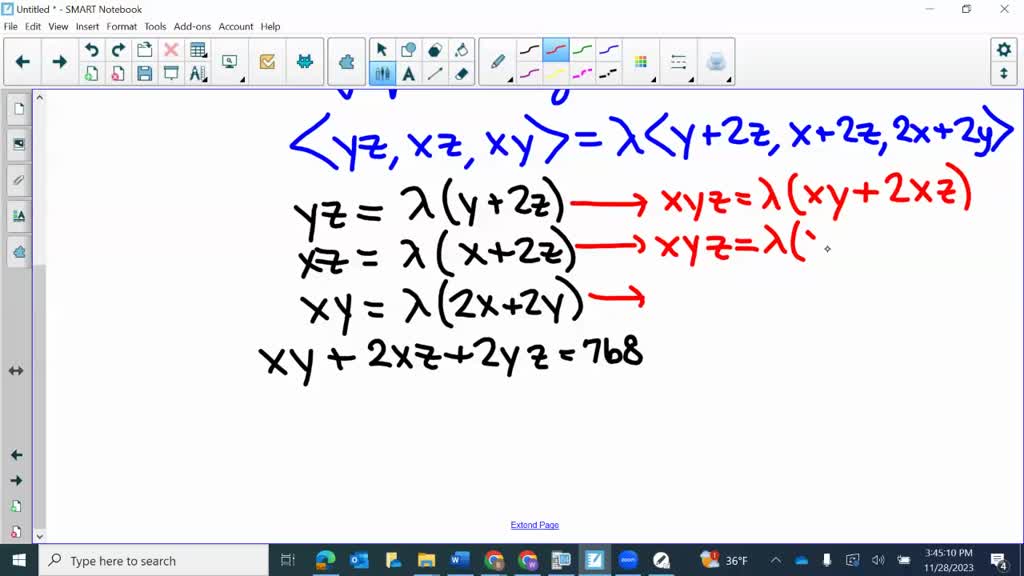 Untitled * - SMART Notebook
File Edit View Insert Format Tools Add-ons Account Help
<yz, xz, xy> = λ<y+2z, x+2z, 2x+2y>
yz = λ(y+2z) → xyz = λ(xy+2xz)
xz = λ(x+2z) → xyz = λ(
xy = λ(2x+2y) →
xy + 2xz + 2yz = 768
Extend Page
Type here to search
36°F
3:45:10 PM
11/28/2023
4